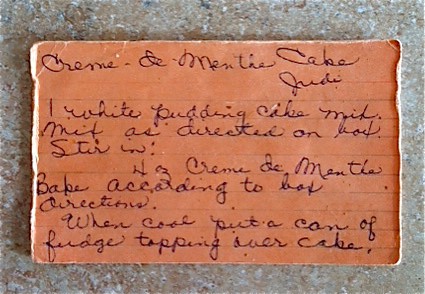 Creme-de-Menthe Cake
Judi
1 white pudding cake mix.
Mix as directed on box.
Stir in:
4 oz Creme de Menthe
Bake according to box
directions.
When cool put a can of
fudge topping over cake.